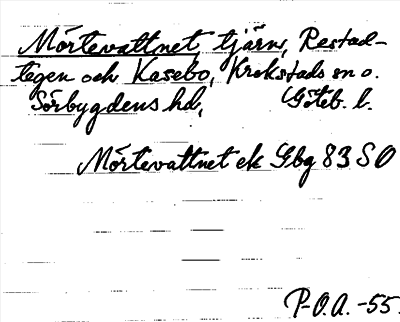 Mörtevattnet, tjärn, Restad-
tegen och Kasebo, Krokstads sn o.
Sörbygdens hd, Göteb. l.
Mörtevattnet ek Gbg 83 S O
P-O.A. -55.